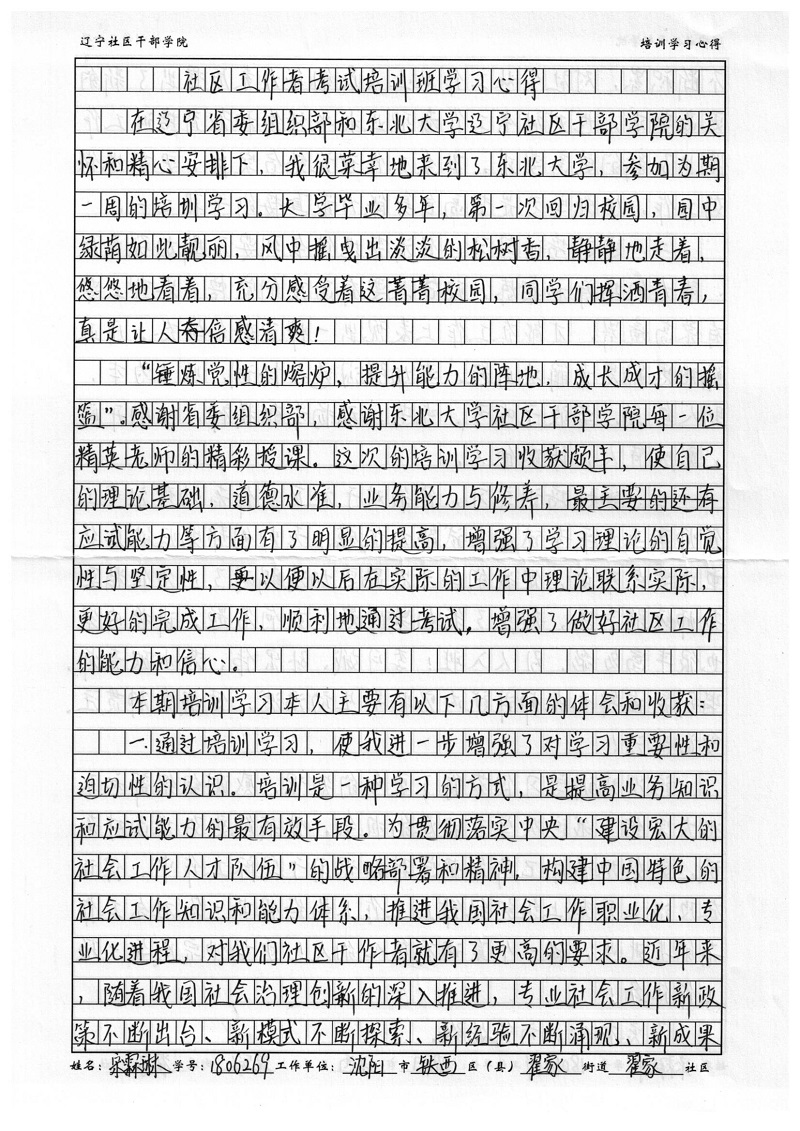 辽宁社区干部学院 培训学习心得
社区工作者考试培训班学习心得
在辽宁省委组织部和东北大学辽宁社区干部学院的关
怀和精心安排下，我很荣幸地来到了东北大学，参加为期
一周的培训学习。大学毕业多年，第一次回归校园，园中
绿荫如此靓丽，风中摇曳出淡淡的松树香，静静地走着，
悠悠地看着，充分感受着这菁菁校园，同学们挥洒青春，
真是让人倍感清爽！
“锤炼党性的熔炉，提升能力的阵地，成长成才的摇
篮”。感谢省委组织部，感谢东北大学社区干部学院每一位
精英老师的精彩授课。这次的培训学习收获颇丰，使自己
的理论基础，道德水准，业务能力与修养，最主要的还有
应试能力等方面有了明显的提高，增强了学习理论的自觉
性与坚定性，更以便以后在实际的工作中理论联系实际，
更好的完成工作，顺利地通过考试，增强了做好社区工作
的能力和信心。
本期培训学习本人主要有以下几方面的体会和收获：
一.通过培训学习，使我进一步增强了对学习重要性和
迫切性的认识。培训是一种学习的方式，是提高业务知识
和应试能力的最有效手段。为贯彻落实中央“建设宏大的
社会工作人才队伍”的战略部署和精神，构建中国特色的
社会工作知识和能力体系，推进我国社会工作职业化、专
业化进程，对我们社区干作者就有了更高的要求。近年来
，随着我国社会治理创新的深入推进，专业社会工作新政
策不断出台、新模式不断探索、新经验不断涌现、新成果
姓名：霖琳 学号：1806269 工作单位：沈阳 市 铁西 区（县）翟家 街道 翟家 社区